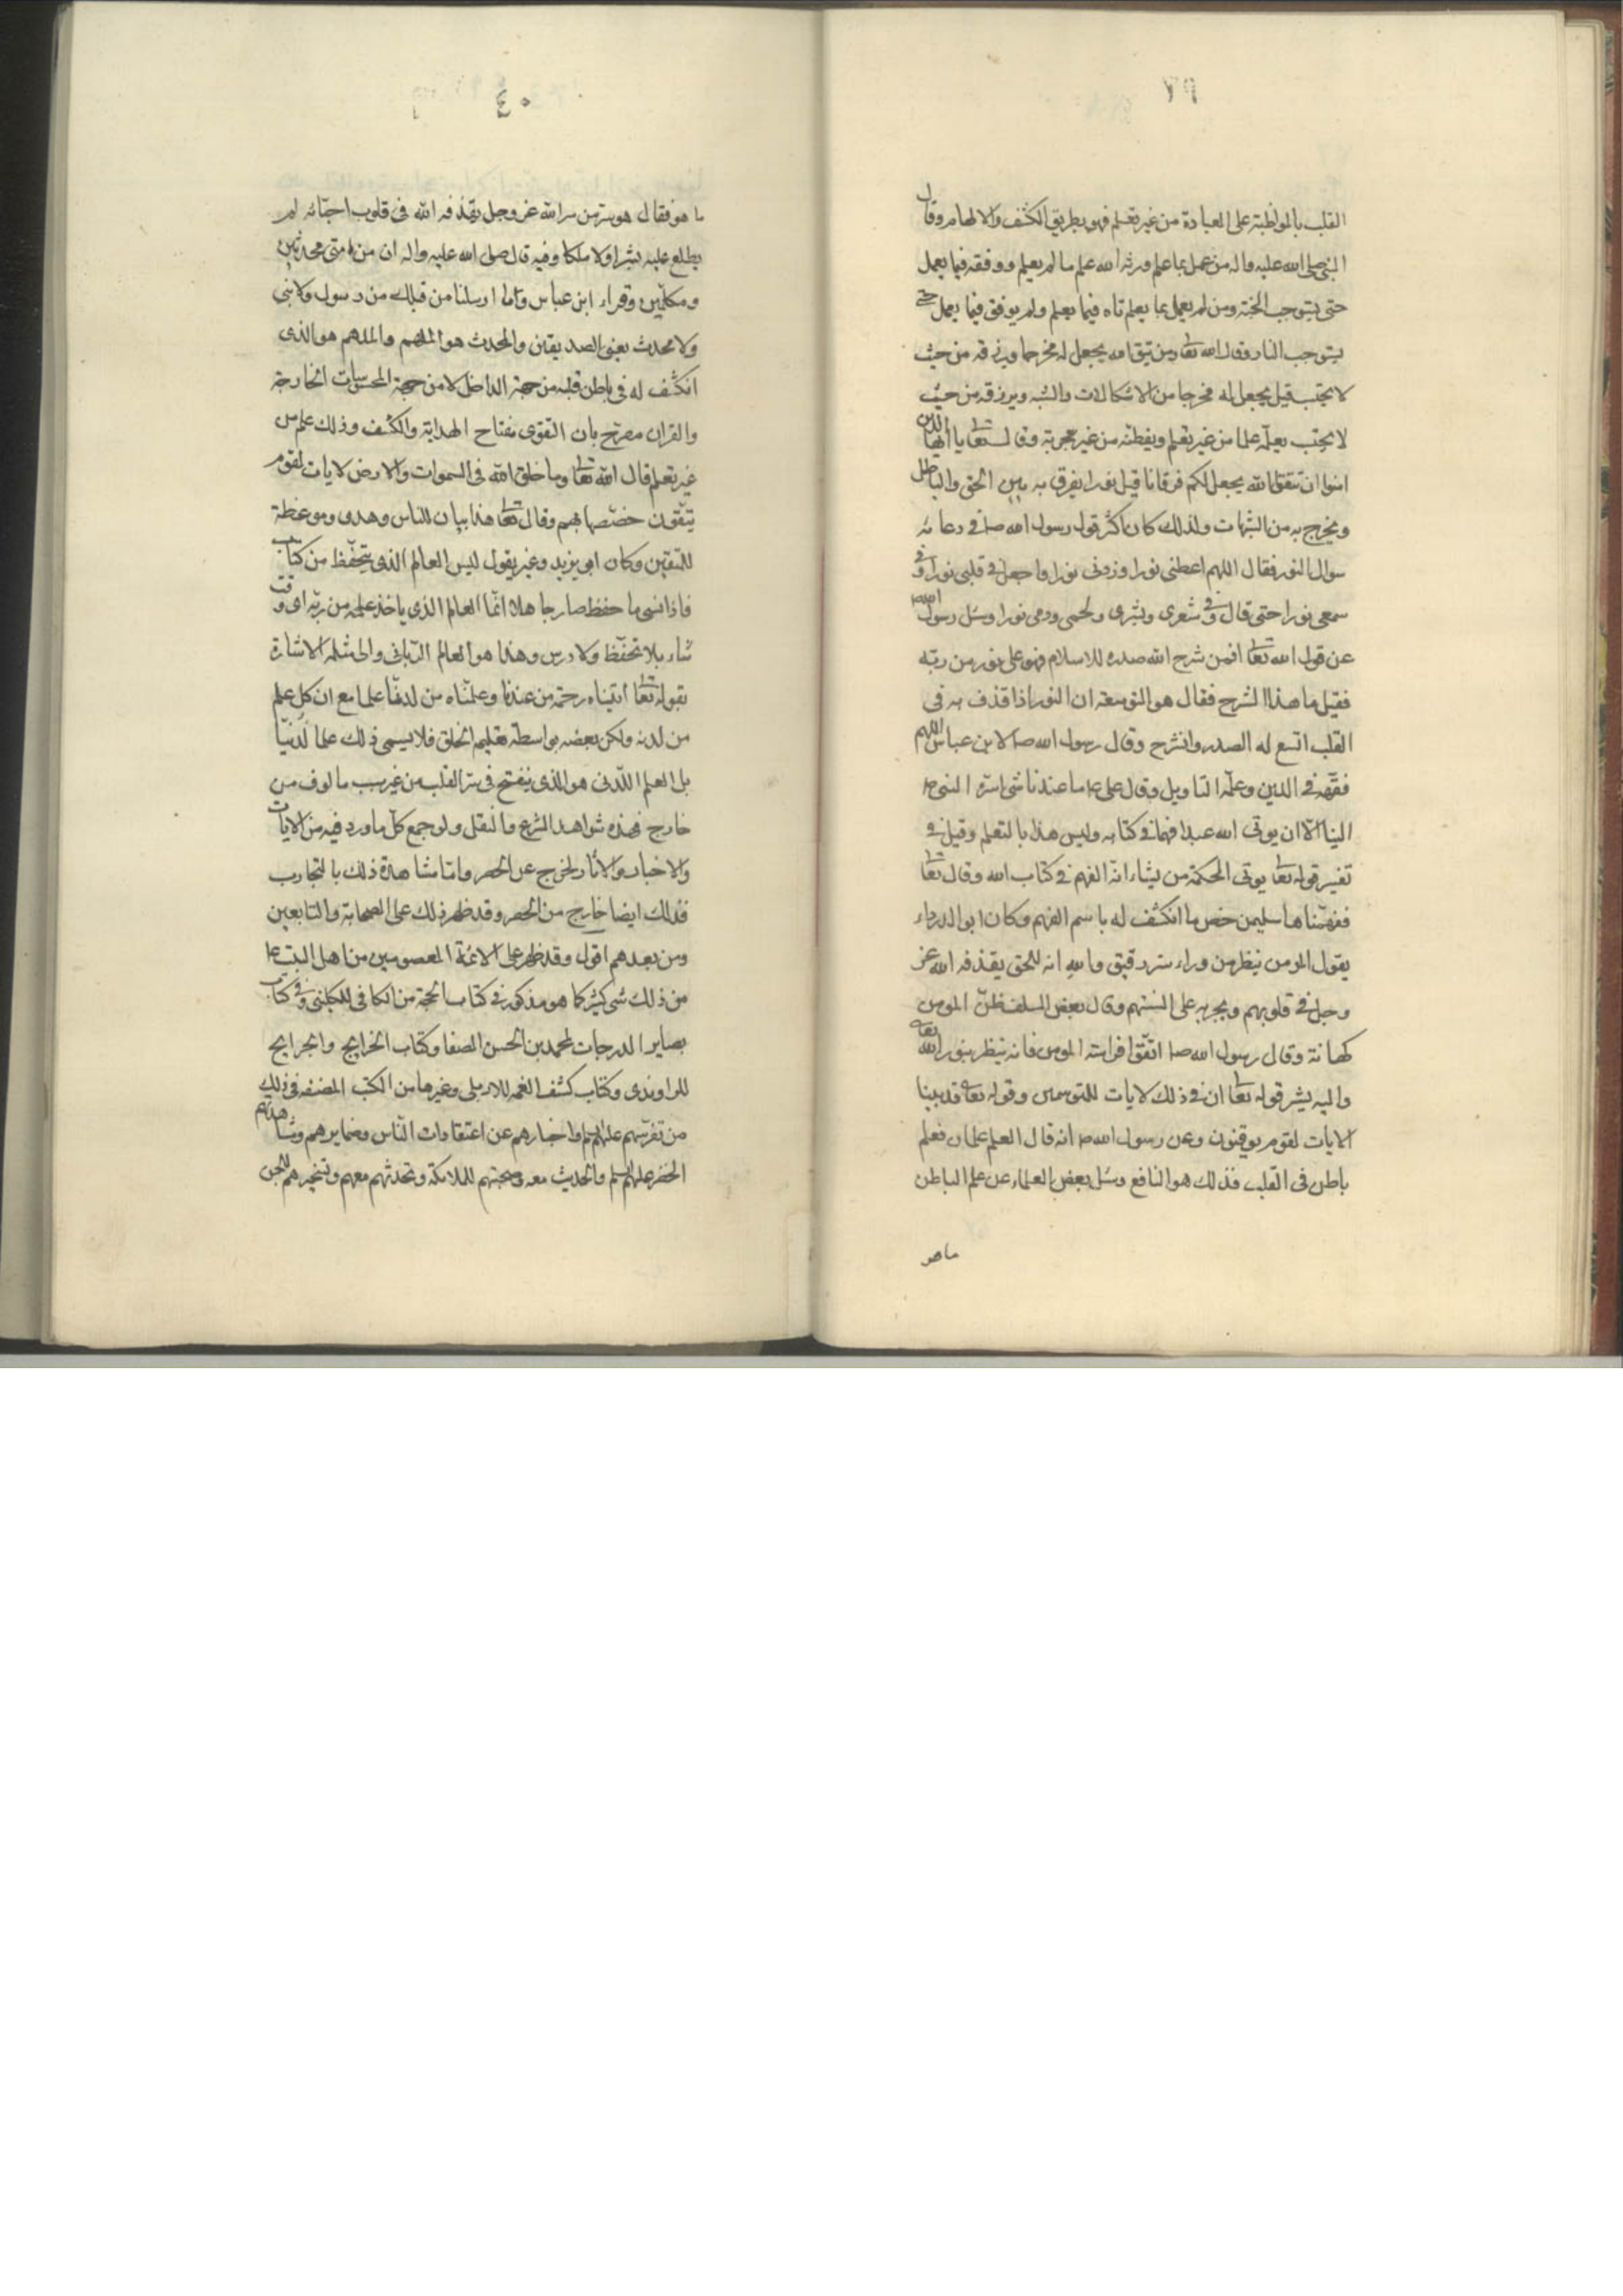 ٧٩
القلب بالمواظبة على العبادة من غير تعلم فهو بطريق الكشف والالهام وقال
النبي صلى الله عليه واله من عمل بما علم ورثه الله علم ما لم يعلم ووفقه فيما يعمل
حتى يستوجب الجنة ومن لم يعمل بما يعلم تاه فيما يعلم ولم يوفق فيما يعمل حتى
يستوجب النار وقال الله تعا ومن يتق الله يجعل له مخرجا ويرزقه من حيث
لا يحتسب قيل يجعل له مخرجا من الاشكالات والشبه ويرزقه من حيث
لا يحتسب يعلمه علما من غير تعلم ويفطنه من غير تجربة وقال تعا يا ايها الذين
امنوا ان تتقوا الله يجعل لكم فرقانا قيل نورا يفرق به بين الحق والباطل
ويخرج به من الشبهات ولذلك كان اكثر قول رسول الله ص في دعائه
سوال النور فقال اللهم اعطنى نورا وزدنى نورا واجعل في قلبى نورا وفي
سمعى نورا حتى قال وفي شعرى وبشرى ولحمى ودمى نورا وسئل رسول الله ص
عن قول الله تعا افمن شرح الله صدره للاسلام فهو على نور من ربه
فقيل ما هذا الشرح فقال هو التوسعة ان النور اذا قذف به فى
القلب اتسع له الصدر وانشرح وقال رسول الله ص لابن عباس اللهم
فقهه في الدين وعلمه التاويل وقال على ع ما عندنا شئ اسره النبى ص
الينا الا ان يوتى الله عبدا فهما في كتابه وليس هذا بالتعلم وقيل في
تفسير قوله تعا يوتى الحكمة من يشاء انه الفهم في كتاب الله وقال تعا
ففهمناها سليمن خص ما انكشف له باسم الفهم وكان ابو الدرداء
يقول المومن ينظر من وراء ستر رقيق والله انه للحق يقذفه الله عز
وجل في قلوبهم ويجريه على السنتهم وقال بعض السلف ظن المومن
كهانة وقال رسول الله ص اتقوا فراسة المومن فانه ينظر بنور الله تعا
واليه يشير قوله تعا ان في ذلك لايات للمتوسمين وقوله تعا قد بينا
الايات لقوم يوقنون وعن رسول الله ص انه قال العلم علمان فعلم
باطن فى القلب فذلك هو النافع وسئل بعض العلماء عن علم الباطن
ما هو
٤٠
ما هو فقال هو سر من سر الله عز وجل يقذفه الله فى قلوب احبائه لم
يطلع عليه بشرا ولا ملكا وفيه قال صلى الله عليه واله ان من امتى محدثين
ومكلمين وقراء ابن عباس وما ارسلنا من قبلك من رسول ولا نبى
ولا محدث يعنى الصديقين والمحدث هو الملهم والملهم هو الذى
انكشف له فى باطن قلبه من جهة الداخل لا من جهة المحسوسات الخارجة
والقران مصرح بان التقوى مفتاح الهداية والكشف وذلك علم من
غير تعلم قال الله تعا وما خلق الله فى السموات والارض لايات لقوم
يتقون خصصها بهم وقال تعا هذا بيان للناس وهدى وموعظة
للمتقين وكان ابو يزيد وغيره يقول ليس العالم الذى يتحفظ من كتاب
فاذا نسى ما حفظ صار جاهلا انما العالم الذى ياخذ علمه من ربه اى وقت
شاء بلا تحفظ ولا درس وهذا هو العالم الربانى والى مثله الاشارة
بقوله تعا اتيناه رحمة من عندنا وعلمناه من لدنا علما مع ان كل علم
من لدنه ولكن بعضه بواسطة تعليم الخلق فلا يسمى ذلك علما لدنيا
بل العلم اللدنى هو الذى ينفتح فى سر القلب من غير سبب مالوف من
خارج فهذه شواهد الشرع والنقل ولو جمع كل ما ورد فيه من الايات
والاخبار والاثار لخرج عن الحصر واما مشاهدة ذلك بالتجارب
فذلك ايضا خارج من الحصر وقد ظهر ذلك على الصحابة والتابعين
ومن بعدهم اقول وقد ظهر على الائمة المعصومين من اهل البيت ع
من ذلك شئ كثير كما هو مذكور في كتاب الحجة من الكافى للكلينى وفي كتاب
بصاير الدرجات لمحمد بن الحسن الصفا وكتاب الخرايج والجرايح
للراوندى وكتاب كشف الغمه للاربلى وغيرها من الكتب المصنفه فى ذلك
من تفرسهم عليهم السلم واخبارهم عن اعتقادات الناس وضمايرهم ومشاهدتهم
الخضر عليهم السلم والحديث معه وصحبتهم للملائكة وتحدثهم معهم وتسخيرهم للجن